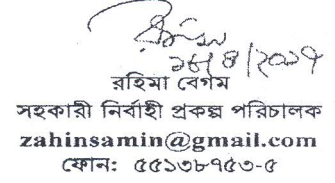 রহিমা বেগম
সহকারী নির্বাহী প্রকল্প পরিচালক
zahinsamin@gmail.com
ফোন: ৫৫১৩৮৭৫৩-৫